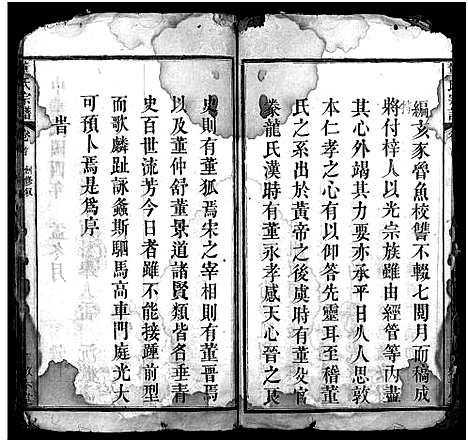 編亥豕魯魚校讐不輟七閱月而稿成
將付梓人以光宗族雖由經管等內盡
其心外竭其力要亦天良不昧人人思敦
本仁孝之心有以仰答先靈耳至稽董
氏之系出於黃帝之後虞時有董父官
豢龍氏漢時有董永孝感天心晉之良
史則有董狐焉宋之宰相則有董晉焉
以及董仲舒董景道諸賢類皆名垂青
史百世流芳今日者雖不能接踵前型
而歌麟趾詠螽斯駟馬高車門庭光大
可預卜焉是為序
昔